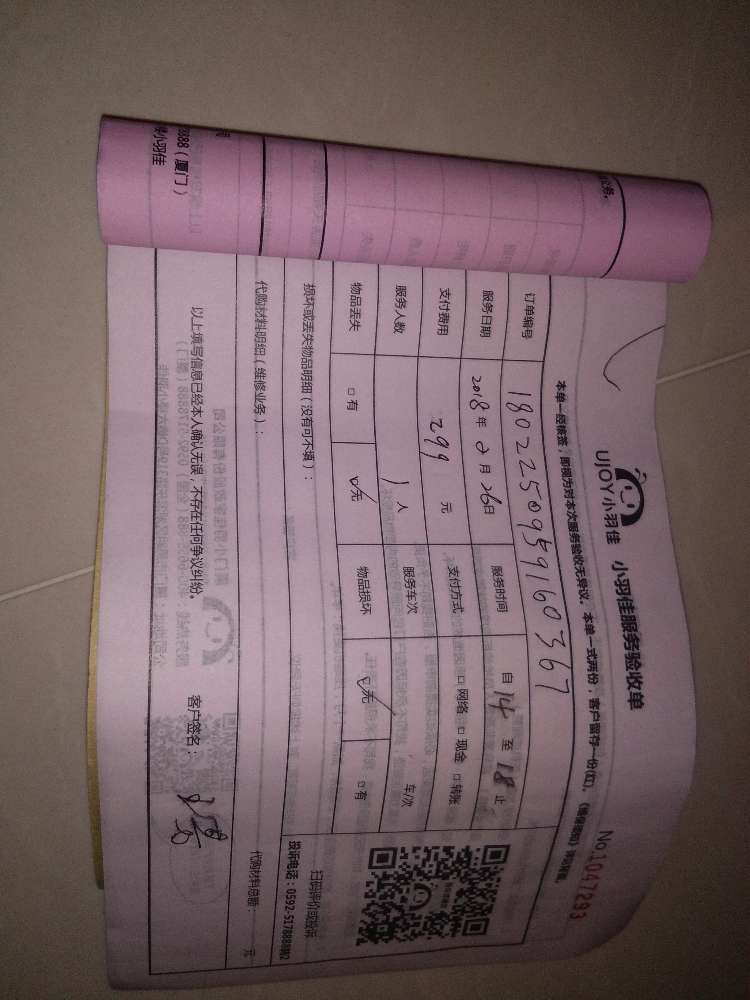 UJOY小羽佳 小羽佳服务验收单
No.1047293
本单一经核签，即视为对本次服务验收无异议。本单一式两份，客户留存一份(红)。
订单编号 1802250959160367
服务日期 2018年2月26日 服务时间 自14至18止
支付费用 299元 支付方式 □网络 □现金 □转账
服务人数 1人 服务车次 车/次
物品丢失 □有 □无 物品损坏 □无 □有
扫码评价或投诉
投诉电话：0592-5178888转2
损坏或丢失物品明细（没有可不填）：
代购材料明细（维修业务）： 代购材料总额： 元
以上填写信息已经本人确认无误，不存在任何争议纠纷。 客户签名：
8888（厦门）
小羽佳